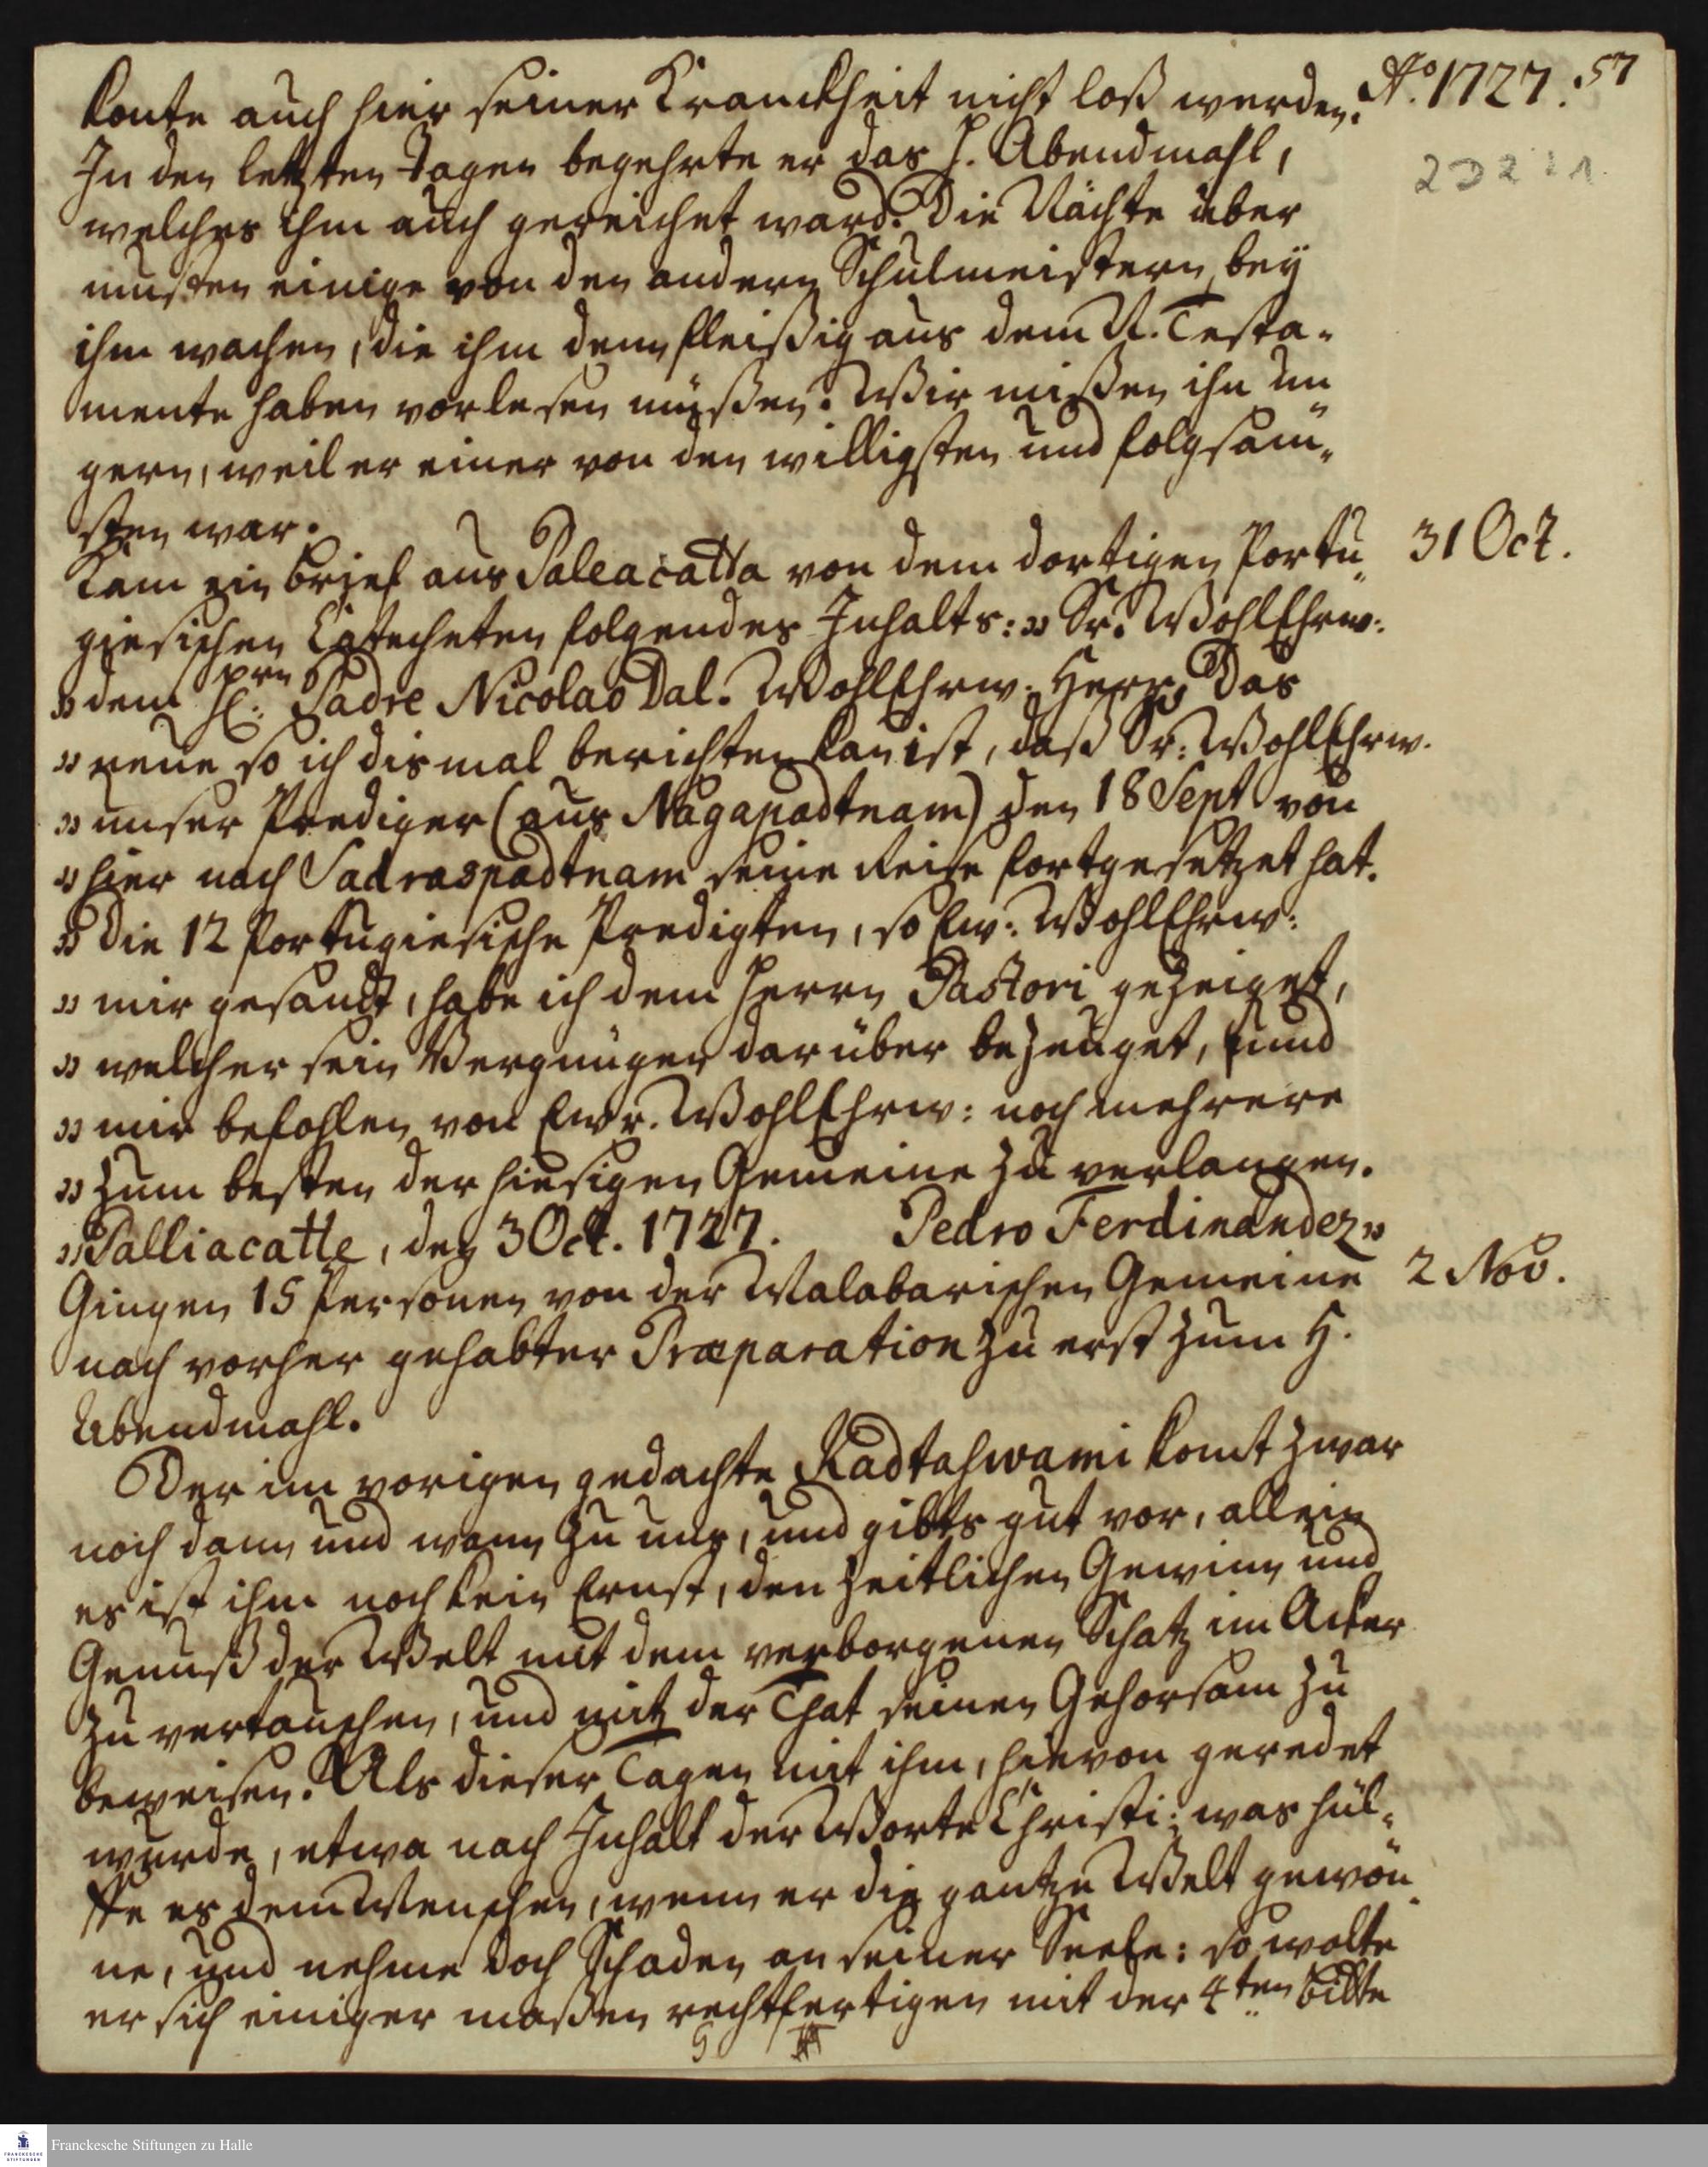 Aō. 1727. 57
2D2:1.
konte auch hier seiner Kranckheit nicht loß werden.
In den letzten Tagen begehrte er das H. Abendmahl,
welches ihm auch gereichet ward. Die Nächte über
musten einige von den andern Schulmeistern bey
ihm wachen, die ihm denn fleißig aus dem N. Testa-
mente haben vorlesen müßen. Wir mißen ihn un-
gern, weil er einer von den willigsten und folgsam-
sten war.
31 Oct.
Kam ein brief aus Paleacatta von dem dortigen Portu-
giesischen Catecheten folgendes Inhalts: „Sr. WohlEhrw:
„dem H: Padre Nicolao Dal. WohlEhrw. Herr, Das
„neue so ich dismal berichten kan ist, daß Sr: WohlEhrw.
„unser Prediger (aus Nagapadtnam) den 18 Sept von
„hier nach Sadraspadtnam seine Reise fortgesetzet hat.
„Die 12 Portugiesische Predigten, so Ew: WohlEhrw:
„mir gesandt, habe ich dem Herrn Pastori gezeiget,
„welcher sein Vergnügen darüber bezeuget, und
„mir befohlen von Ewr. WohlEhrw: noch mehrere
„zum besten der hiesigen Gemeine zu verlangen.
„Palliacatte, den 3 Oct. 1727. Pedro Ferdinandez„
2 Nov.
Gingen 15 Personen von der Malabarischen Gemeine
nach vorher gehabter Præparation zu erst zum H.
Abendmahl.
Der im vorigen gedachte Kadtahwami komt zwar
noch dann und wann zu uns, und gibts gut vor, allein
es ist ihm noch kein Ernst, den zeitlichen Gewinn und
Genuß der Welt mit dem verborgenen Schatz im Acker
zu vertauschen, und mit der That seinen Gehorsam zu
beweisen. Als dieser Tagen mit ihm, hievon geredet
wurde, etwa nach Inhalt der Worte Christi: was hül-
ffe es dem Menschen, wenn er die gantze Welt gewön-
ne, und nehme doch Schaden an seiner Seele: so wolte
er sich einiger maßen rechtfertigen mit der 4ten bitte
Franckesche Stiftungen zu Halle